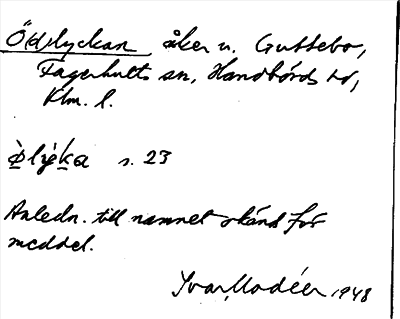 Ö(d)lyckan åker u. Guttebo,
Fagerhults sn, Handbörds hd,
Klm. l.
ö̀lýka s. 23
Anledn. till namnet okänd för
meddel.
Ivar Modéer 1948